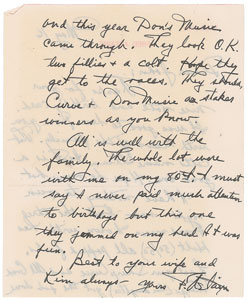 and this year Don's Music
came through. They look O.K.
two fillies & a colt. Hope they
get to the races. They should,
Curve & Dons Music stakes
winners as you know.
All is well with the
family. The whole lot were
with me on my 80th. I must
say I never paid much attention
to birthdays but this one
they jammed on my head & it was
fun.
Best to your wife and
Kim always - yours